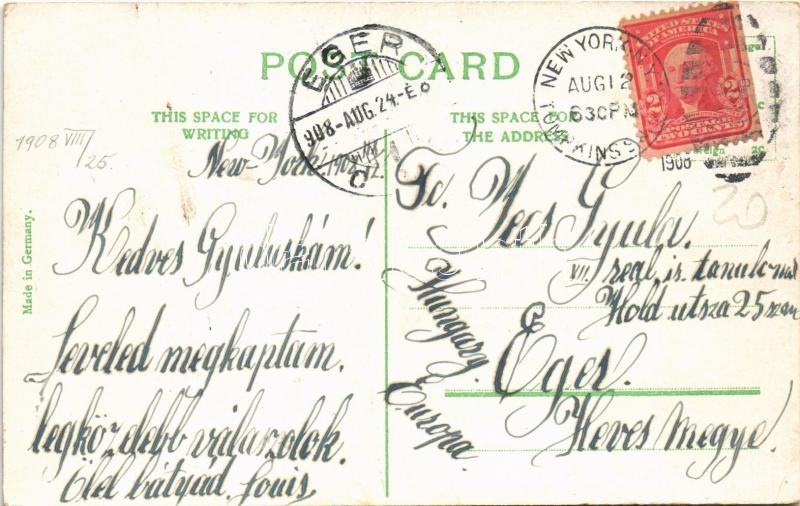 POST CARD
THIS SPACE FOR
WRITING
THIS SPACE FOR
THE ADDRESS
Made in Germany.
1908 VIII/25.
EGER
908-AUG.24-E.6
NEW YORK, N.Y.
AUG 12
630PM
TOMPKINS SQ
1908
UNITED STATES
OF AMERICA
2 2
POSTAGE
TWO CENTS
2C
20
New-York, 1908
Kedves Gyuluskám!
Leveled megkaptam.
legközelebb válaszolok.
Ölel bátyád. Louis
Tc. Vecs Gyula.
VII. reál is. tanuló-nak
Hold utsza 25 szám
Eger.
Heves Megye.
Hungary.
Europa.